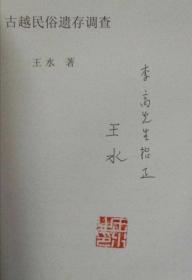 古越民俗遗存调查
王水 著
李高先生指正
王水